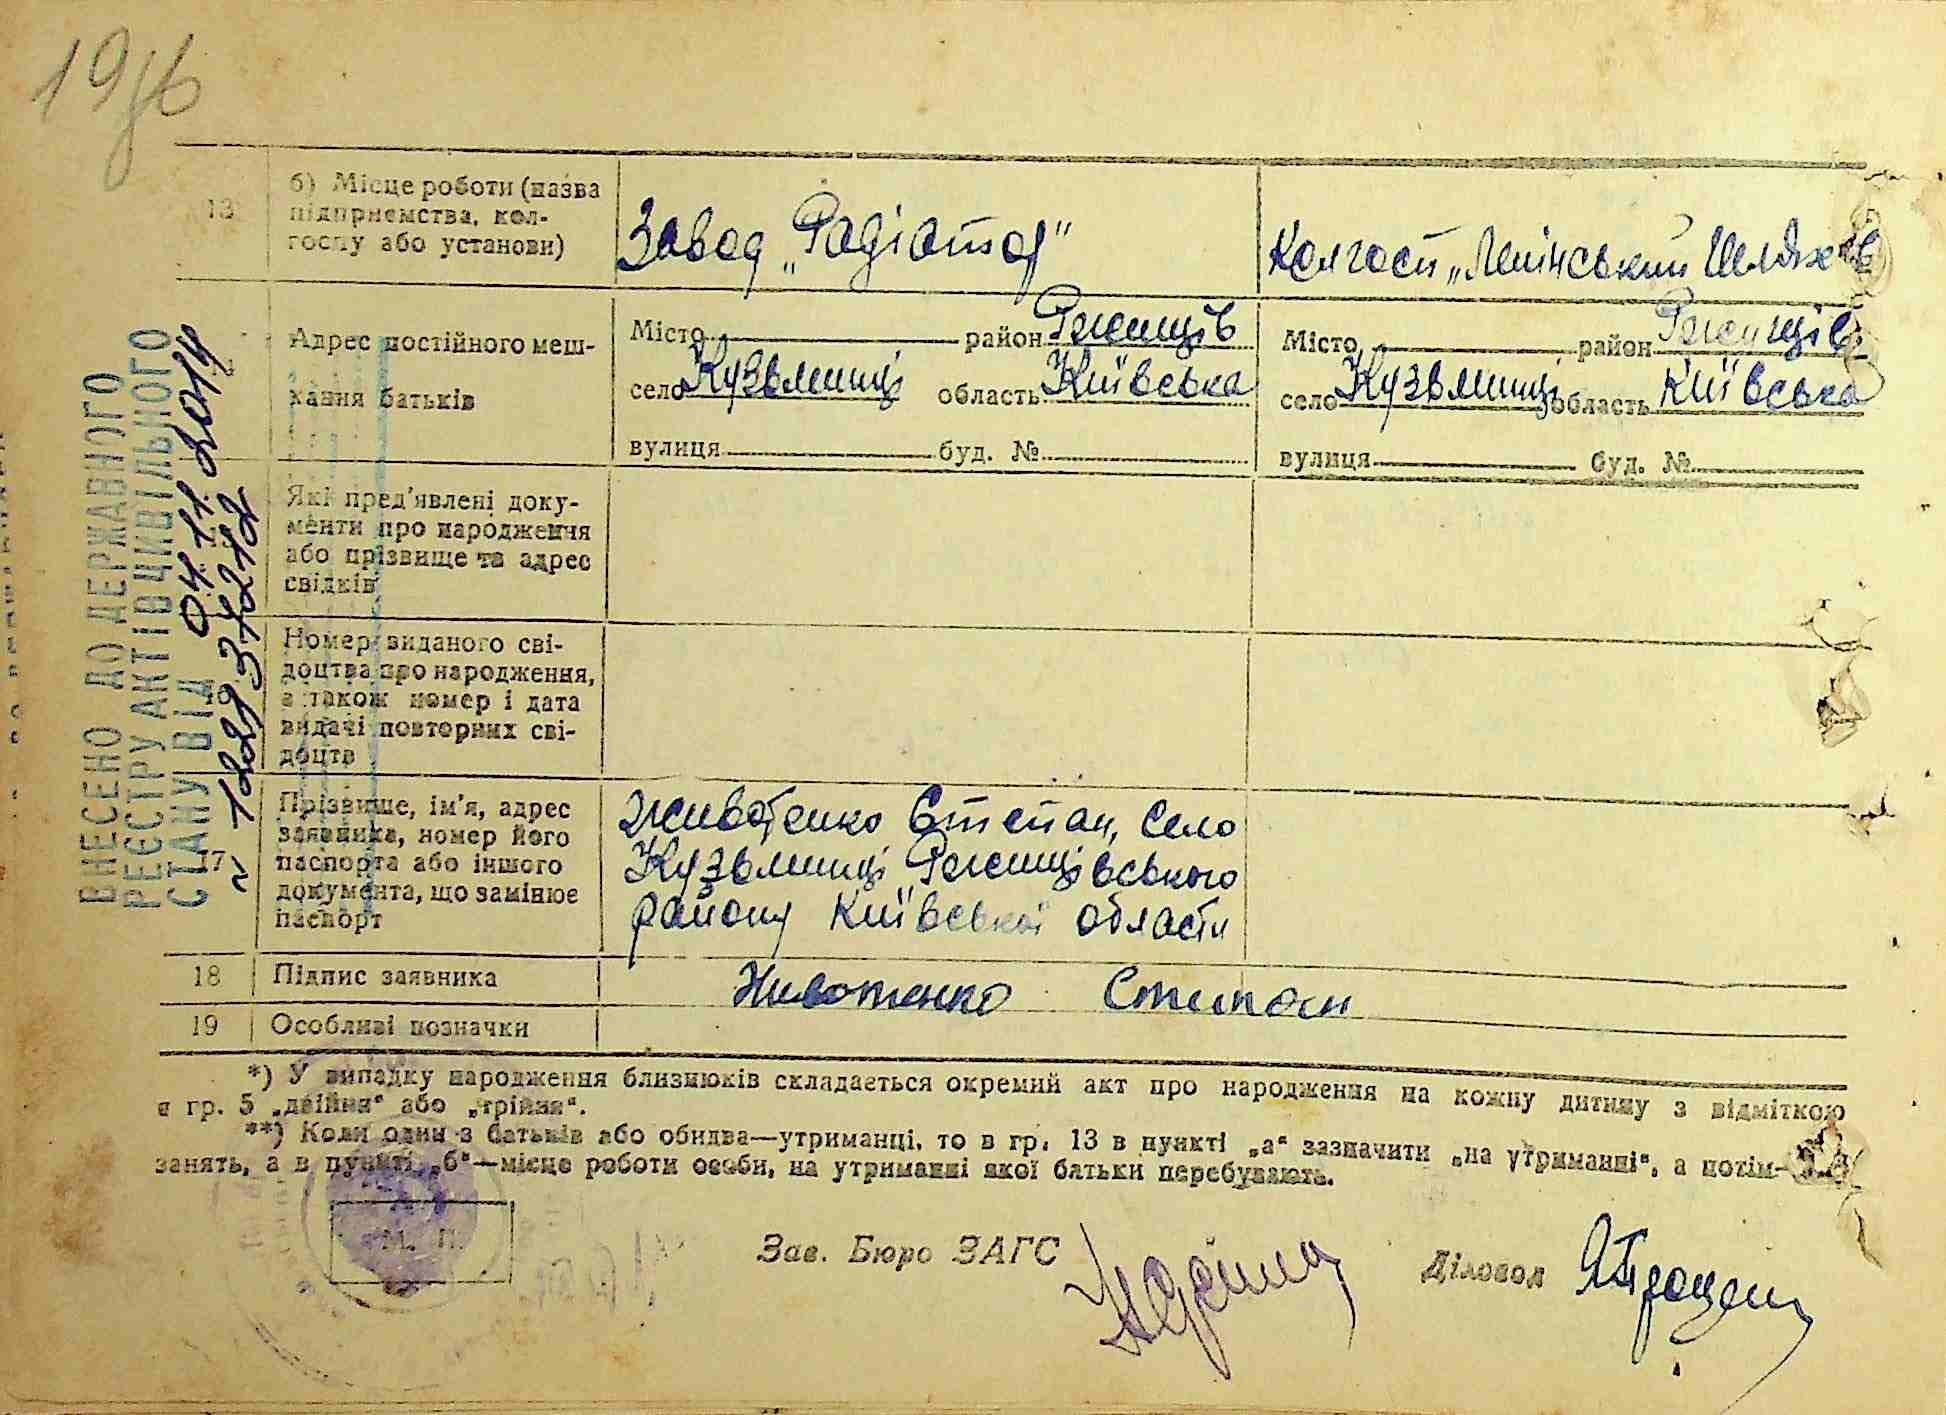 13 б) Місце роботи (назва
підприємства, кол-
госпу або установи)
Завод „Радіатор"
Колгосп „Ленінський Шлях"
Адрес постійного меш-
кання батьків
Місто район Ржищів
село Кузьминці область Київська
вулиця буд. №
Місто район Ржищів
село Кузьминці область Київська
вулиця буд. №
Які пред'явлені доку-
менти про народження
або прізвище та адрес
свідків
16 Номер виданого сві-
доцтва про народження,
а також номер і дата
видачі повторних сві-
доцтв
17 Прізвище, ім'я, адрес
заявника, номер його
паспорта або іншого
документа, що замінює
паспорт
Животенко Степан, село
Кузьминці Ржищівського
району Київської области
18 Підпис заявника
Животенко Степан
19 Особливі позначки
*) У випадку народження близнюків складається окремий акт про народження на кожну дитину з відміткою
в гр. 5 „двійня" або „трійня".
**) Коли один з батьків або обидва—утриманці, то в гр. 13 в пункті „а" зазначити „на утриманні", а потім—
занять, а в пункті „б"—місце роботи особи, на утриманні якої батьки перебувають.
М. П.
Зав. Бюро ЗАГС
Діловод
ВНЕСЕНО ДО ДЕРЖАВНОГО
РЕЄСТРУ АКТІВ ЦИВІЛЬНОГО
СТАНУ ВІД 04.11.2014